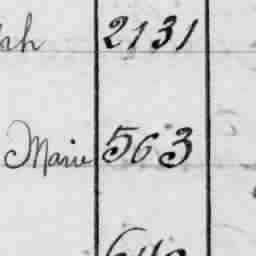 2131
Marie 563